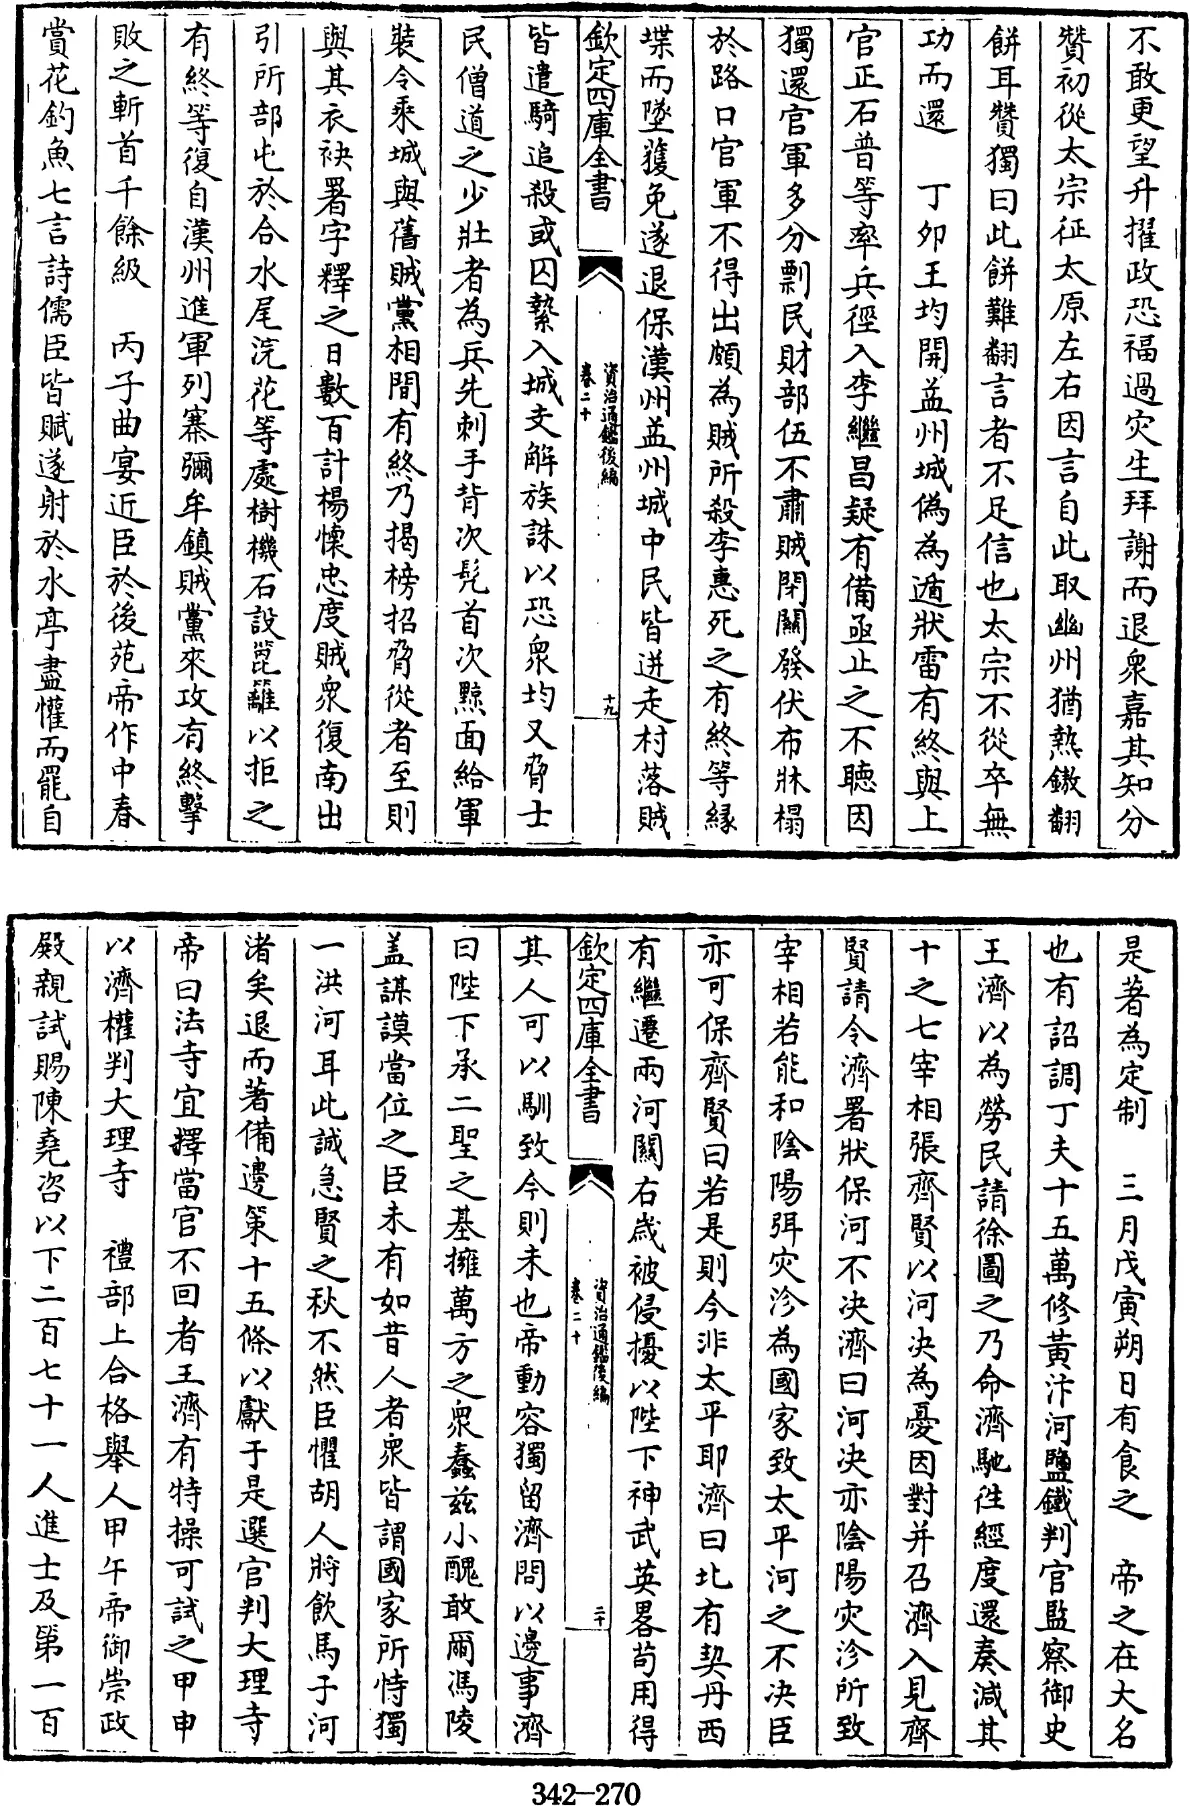 不敢更望升擢政恐福過灾生拜謝而退衆嘉其知分
贊初從太宗征太原左右因言自此取幽州猶熱鏊翻
餅耳贊獨曰此餅難翻言者不足信也太宗不從卒無
功而還　丁卯王均開益州城偽為遁狀雷有終與上
官正石普等率兵徑入李繼昌疑有備亟止之不聴因
獨還官軍多分剽民財部伍不肅賊閉關發伏布牀榻
於路口官軍不得出頗為賊所殺李惠死之有終等縁
堞而墜獲免遂退保漢州益州城中民皆迸走村落賊
欽定四庫全書
資治通鑑後編
卷二十
十九
皆遣騎追殺或囚縶入城支解族誅以恐衆均又脅士
民僧道之少壯者為兵先刺手背次髡首次黥面給軍
裝令乘城與舊賊黨相間有終乃揭榜招脅從者至則
與其衣袂署字釋之日數百計楊懷忠度賊衆復南出
引所部屯於合水尾浣花等處樹機石設笓籬以拒之
有終等復自漢州進軍列寨彌牟鎮賊黨來攻有終擊
敗之斬首千餘級　丙子曲宴近臣於後苑帝作中春
賞花釣魚七言詩儒臣皆賦遂射於水亭盡懽而罷自
是著為定制　三月戊寅朔日有食之　帝之在大名
也有詔調丁夫十五萬修黄汴河鹽鐵判官監察御史
王濟以為勞民請徐圖之乃命濟馳徃經度還奏減其
十之七宰相張齊賢以河决為憂因對并召濟入見齊
賢請令濟署狀保河不决濟曰河决亦陰陽灾沴所致
宰相若能和陰陽弭灾沴為國家致太平河之不决臣
亦可保齊賢曰若是則今非太平耶濟曰北有契丹西
有繼遷兩河關右歲被侵擾以陛下神武英畧苟用得
欽定四庫全書
資治通鑑後編
卷二十
二十
其人可以馴致今則未也帝動容獨留濟問以邊事濟
曰陛下承二聖之基擁萬方之衆蠢兹小醜敢爾馮陵
盖謀謨當位之臣未有如昔人者衆皆謂國家所恃獨
一洪河耳此誠急賢之秋不然臣懼胡人將飲馬于河
渚矣退而著備邊策十五條以獻于是選官判大理寺
帝曰法寺宜擇當官不回者王濟有特操可試之甲申
以濟權判大理寺　禮部上合格舉人甲午帝御崇政
殿親試賜陳堯咨以下二百七十一人進士及第一百
342-270